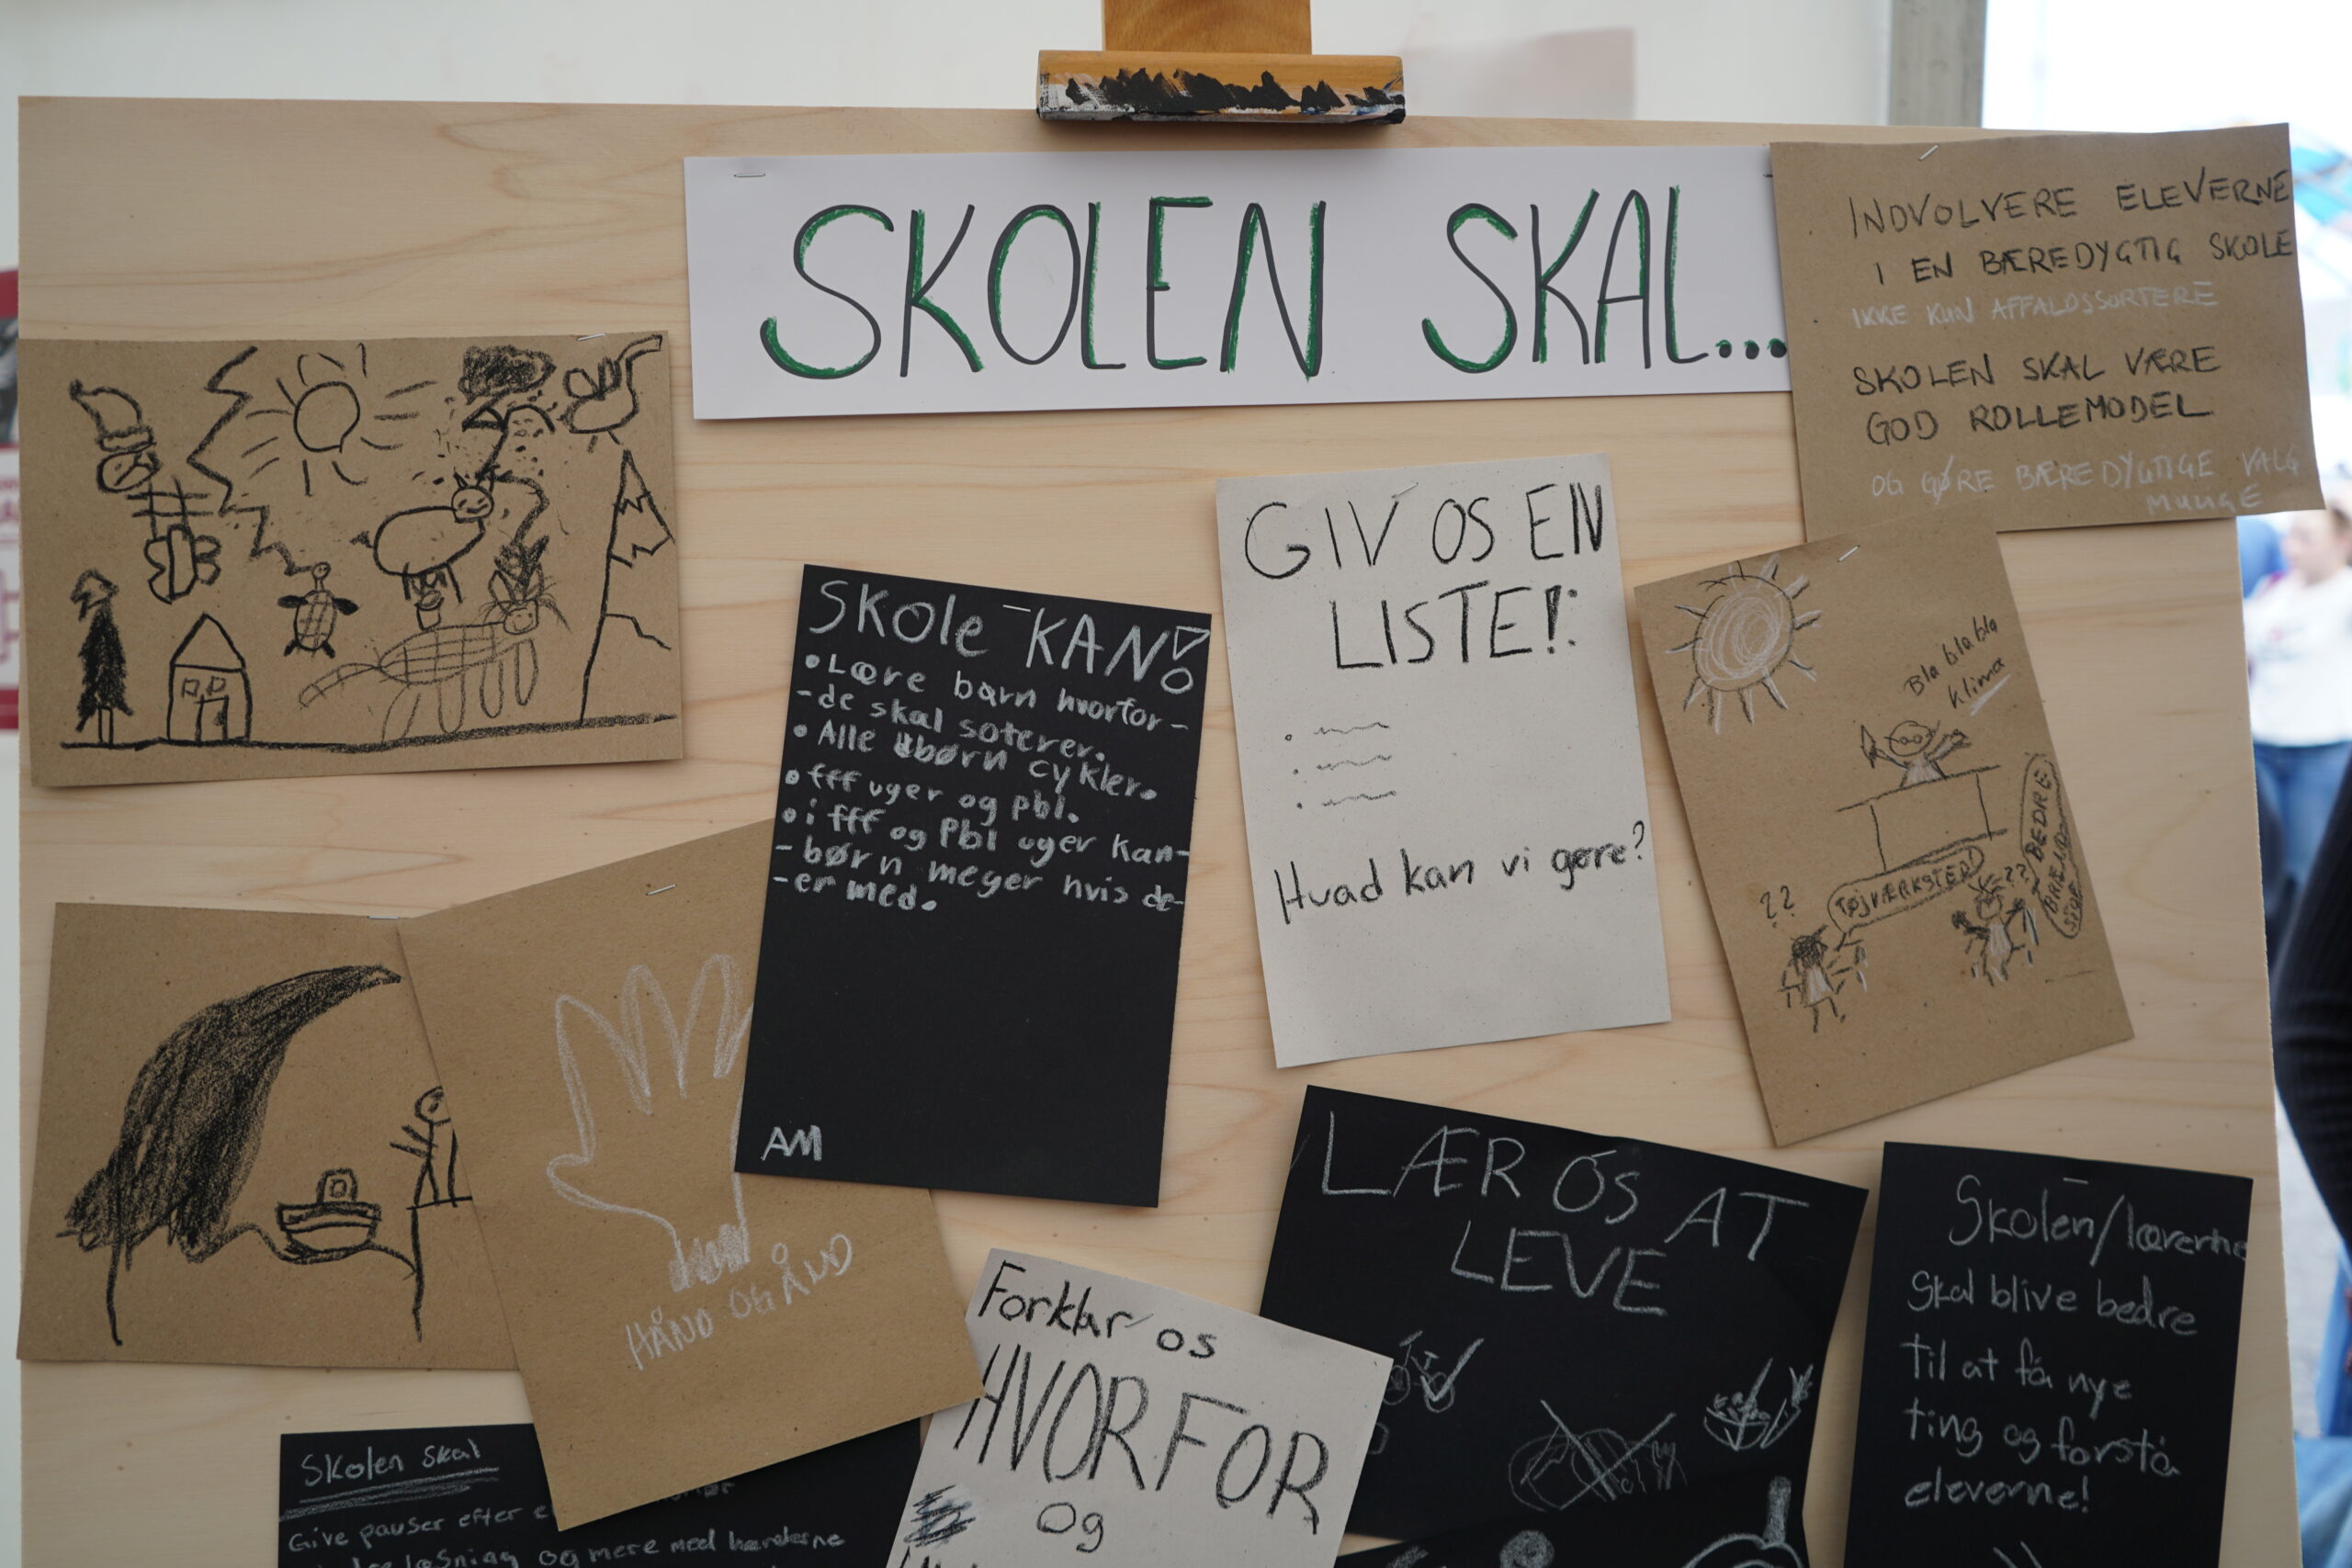 SKOLEN SKAL...
INDVOLVERE ELEVERNE
I EN BÆREDYGTIG SKOLE
IKKE KUN AFFALDSSORTERE
SKOLEN SKAL VÆRE
GOD ROLLEMODEL
OG GØRE BÆREDYGTIGE VALG
MULIGE
GIV OS EN
LISTE!:
Hvad kan vi gøre?
Skole KAN!
• Lære børn hvorfor -
- de skal soterer.
• Alle børn cykler.
• fff uger og pbl.
• i fff og Pbl uger kan -
- børn meger hvis de -
- er med.
AM
Bla bla bla
klima
TØJVÆRKSTED
??
??
BEDRE
HÅND OG ÅND
LÆR OS AT
LEVE
Skolen/lærerne
skal blive bedre
til at få nye
ting og forstå
eleverne!
Forklar os
HVORFOR
og
Skolen skal
Give pauser efter
og mere med hænderne